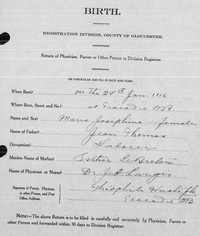 BIRTH.
REGISTRATION DIVISION, COUNTY OF GLOUCESTER.
Return of Physician, Parent or Other Person to Division Registrar.
When Born? on the 28th Jan. 1916
Where Born, Street and No.? at Tracadie N.B.
Name and Sex? Marie Josephine - female
Name of Father? Jean Thomas
Occupation? Labourer
Maiden Name of Mother? Esther
Name of Physician or Nurse? Dr. J. A.
Signature of Parent, Physician or other Person, and Post Office Address. Theophile
Tracadie N.B.
NOTE:—The above Return is to be filled in carefully and accurately by Physician, Parent or other Person and forwarded within 30 days to Division Registrar.